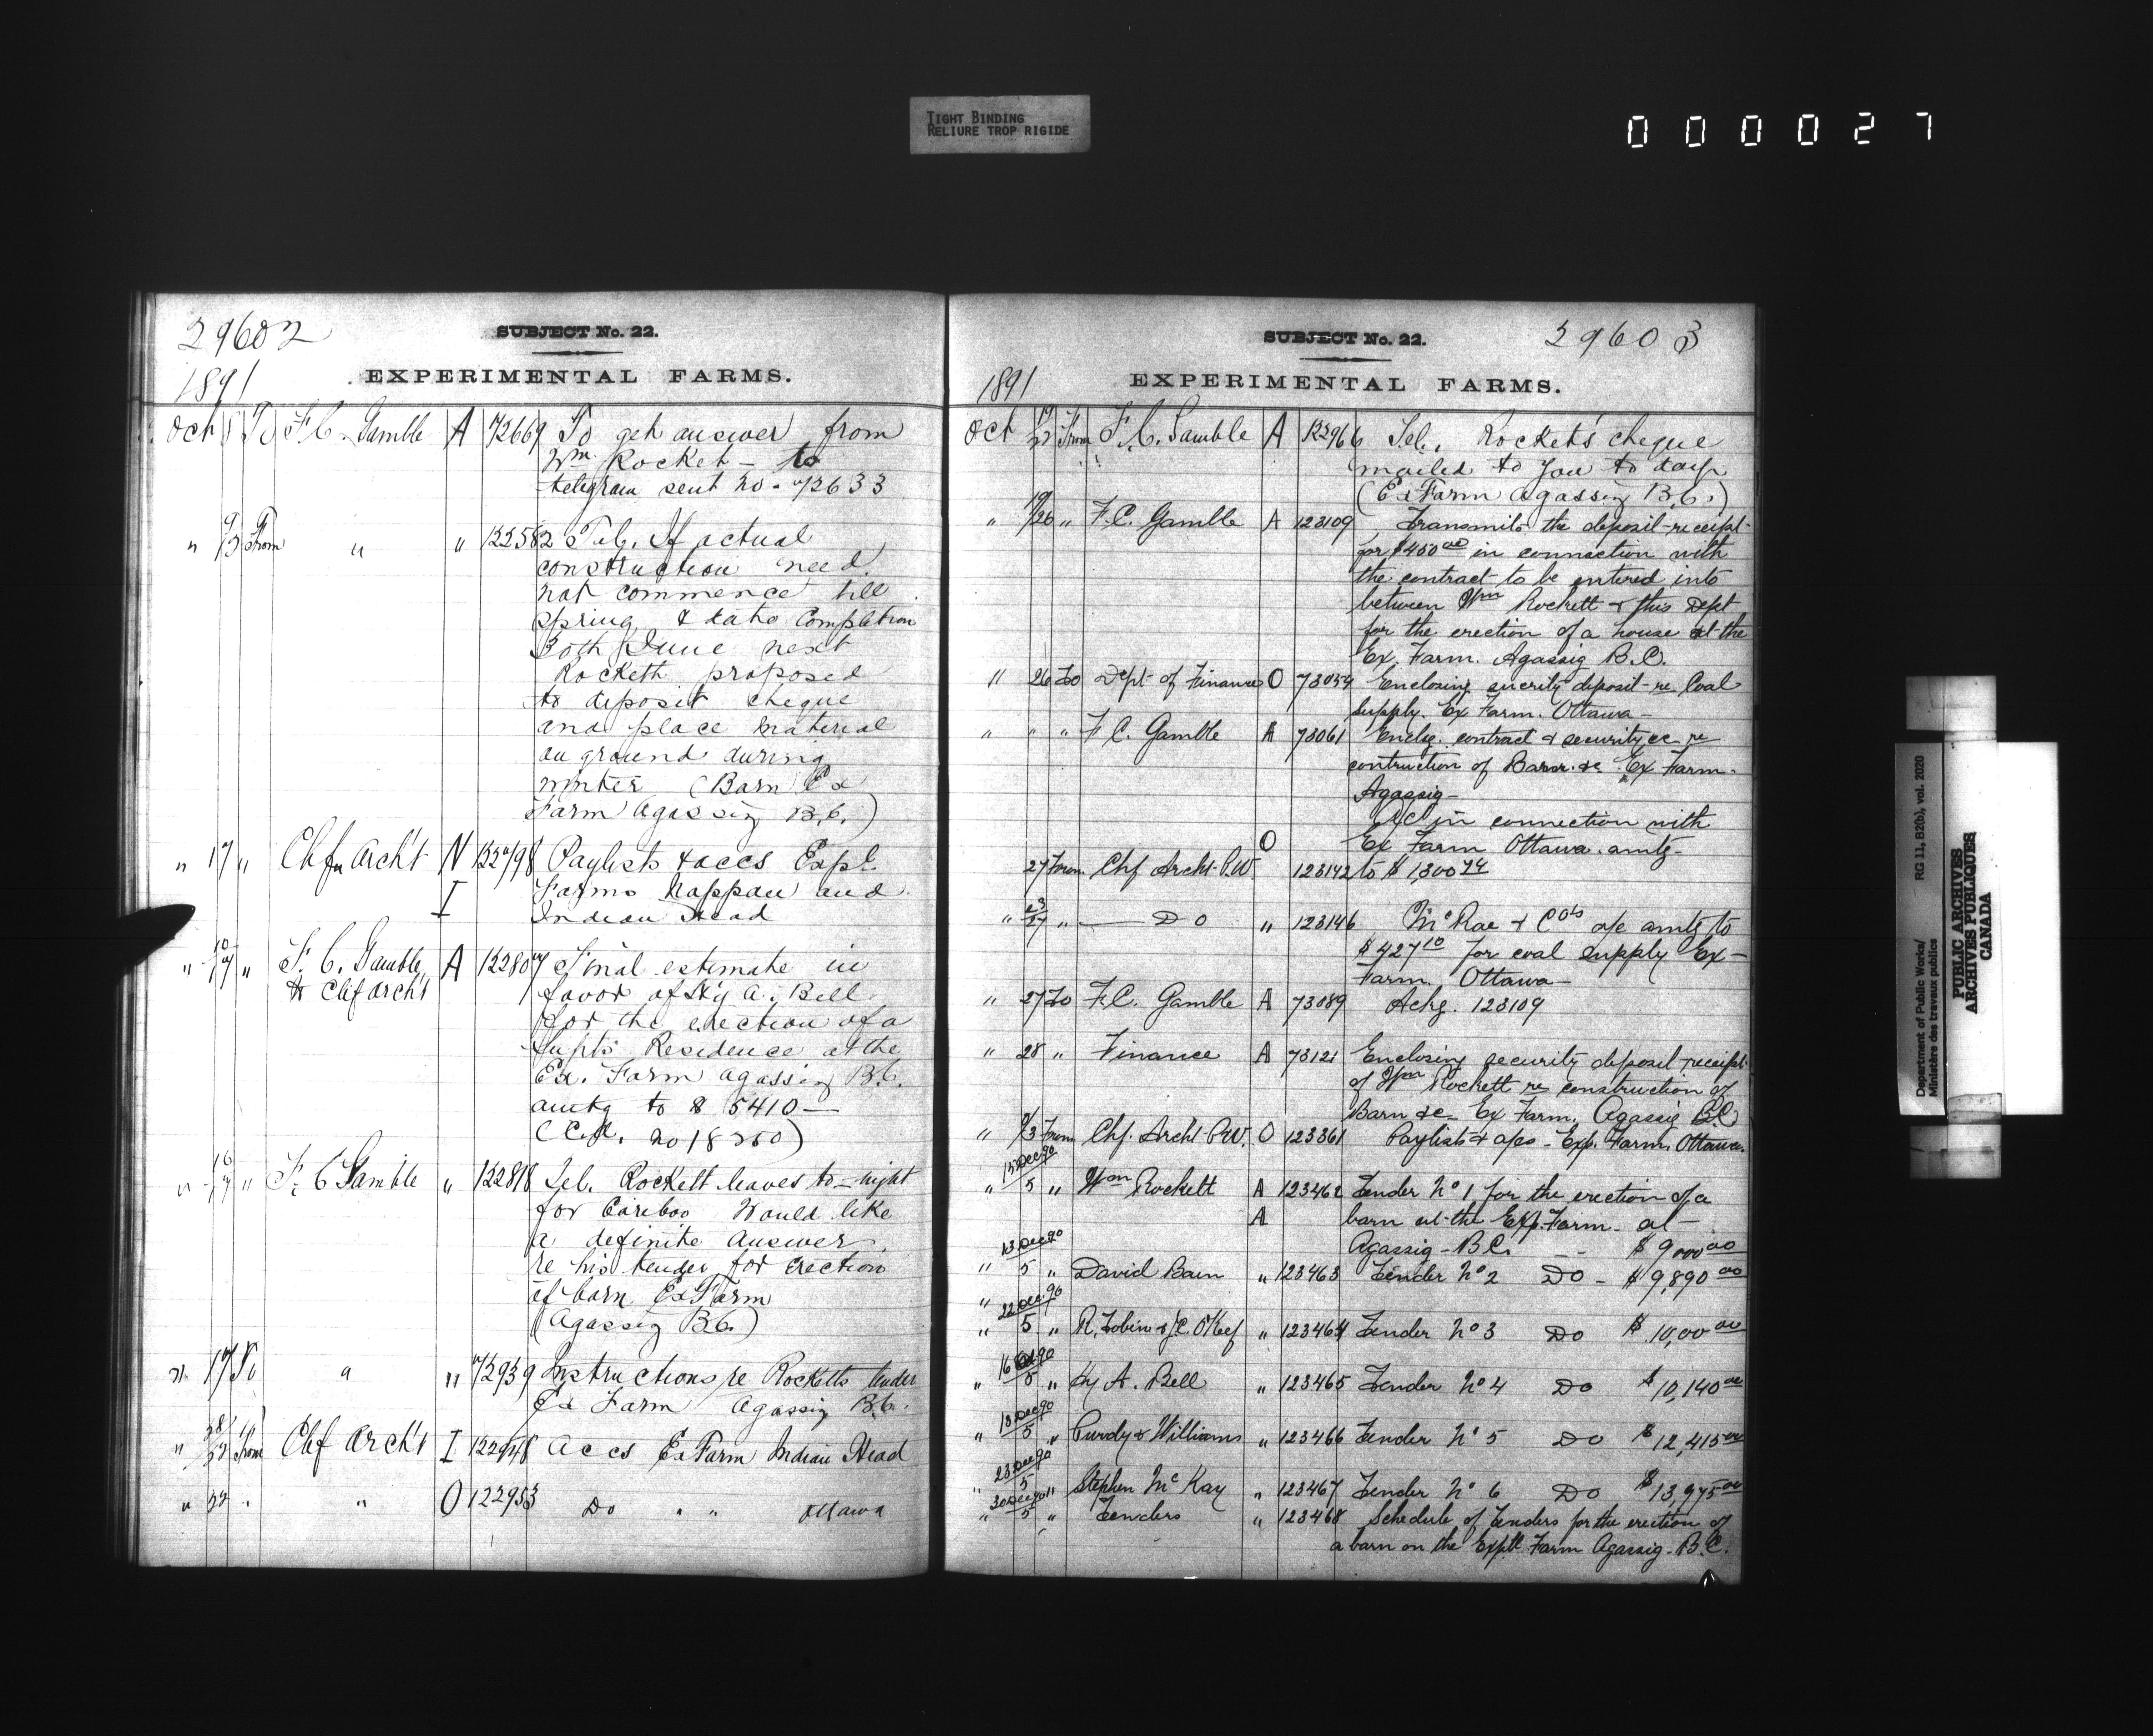 TIGHT BINDING
RELIURE TROP RIGIDE
000027
29602
SUBJECT No. 22.
EXPERIMENTAL FARMS.
1891
Oct 8 To F.C. Gamble A 72669 To get answer from
Wm Rocket - to
telegram sent no. 72633
" 9/13 From " " 122582 Tel. If actual
construction need
not commence till
spring & date completion
30th June next
Rockett proposed
to deposit cheque
and place material
on ground during
winter (Barn Ex
Farm Agassiz B.C.)
" 17 " Chf Archt N 122798 Paylists & accs Expl
I Farms Nappan and
Indian Head
" 10/17 " F.C. Gamble A 122807 Final estimate in
to Chf Archt favor of Hy A. Bell
for the erection of a
Supts Residence at the
Ex. Farm Agassiz B.C.
amtg to $ 5410—
no 18250)
" 16/17 " F.C. Gamble " 122818 Tel. Rockett leaves to-night
for Cariboo Would like
a definite answer
re his tender for erection
of barn Ex Farm
(Agassiz B.C.)
" 17 To " " 72939 Instructions re Rocketts tender
Ex Farm Agassiz B.C.
" 22 From Chf Archt I 122948 Accs Ex Farm Indian Head
" 22 " " O 122953 Do " " Ottawa
SUBJECT No. 22.
29603
EXPERIMENTAL FARMS.
1891
Oct 19/22 From F.C. Gamble A 122966 Tel. Rocket's cheque
mailed to you to day
(Ex Farm Agassiz B.C.)
" 19/26 " F.C. Gamble A 123109 Transmits the deposit-receipt
for $450 00 in connection with
the contract to be entered into
between Wm Rockett & this Dept
for the erection of a house at the
Ex. Farm. Agassig B.C.
" 26 To Dept of Finance O 73054 Enclosing security deposit re Coal
supply. Ex Farm. Ottawa-
" " " F.C. Gamble A 73061 Enclg. contract & security &c re
contruction of Barn &c Ex Farm-
Agassig-
A/C in connection with
O Ex Farm Ottawa. amtg-
27 From Chf Archt P.W. 123142 to $1,300 74
" 23/27 " — Do " 123146 McRae & Cos a/c amtg to
$427 10 for coal supply Ex-
Farm. Ottawa-
" 27 To F.C. Gamble A 73089 Ackg. 123109
" 28 " Finance A 73121 Enclosing security deposit receipt
of Wm Rockett re construction of
Barn &c Ex Farm. Agassig B.C.
" 3 From Chf. Archt P.W. O 123361 Paylist & a/cs - Exp. Farm. Ottawa.
15 Dec 90
" 5 " Wm Rockett A 123462 Tender No 1 for the erection of a
A barn at the Exp. Farm at-
Agassig-B.C. $9,000 00
13 Dec 90
" 5 " David Bain " 123463 Tender No 2 Do - $9,890 00
22 Dec 90
" 5 " R. Tobin & J.C. O'Keef " 123464 Tender No 3 Do $10,00 00
16
" 5 " Hy A. Bell " 123465 Tender No 4 Do $10,140 00
13 Dec 90
" 5 " Purdy & Williams " 123466 Tender No 5 Do $12,415 00
23 Dec 90
" 5 " Stephen McKay " 123467 Tender No 6 Do $13,975 00
30 Dec 90
" 5 " Tenders " 123468 Schedule of Tenders for the erection of
a barn on the Exptl Farm Agassig-B.C.
Department of Public Works/
Ministère des travaux publics
RG 11, B2(b), vol. 2020
PUBLIC ARCHIVES
ARCHIVES PUBLIQUES
CANADA